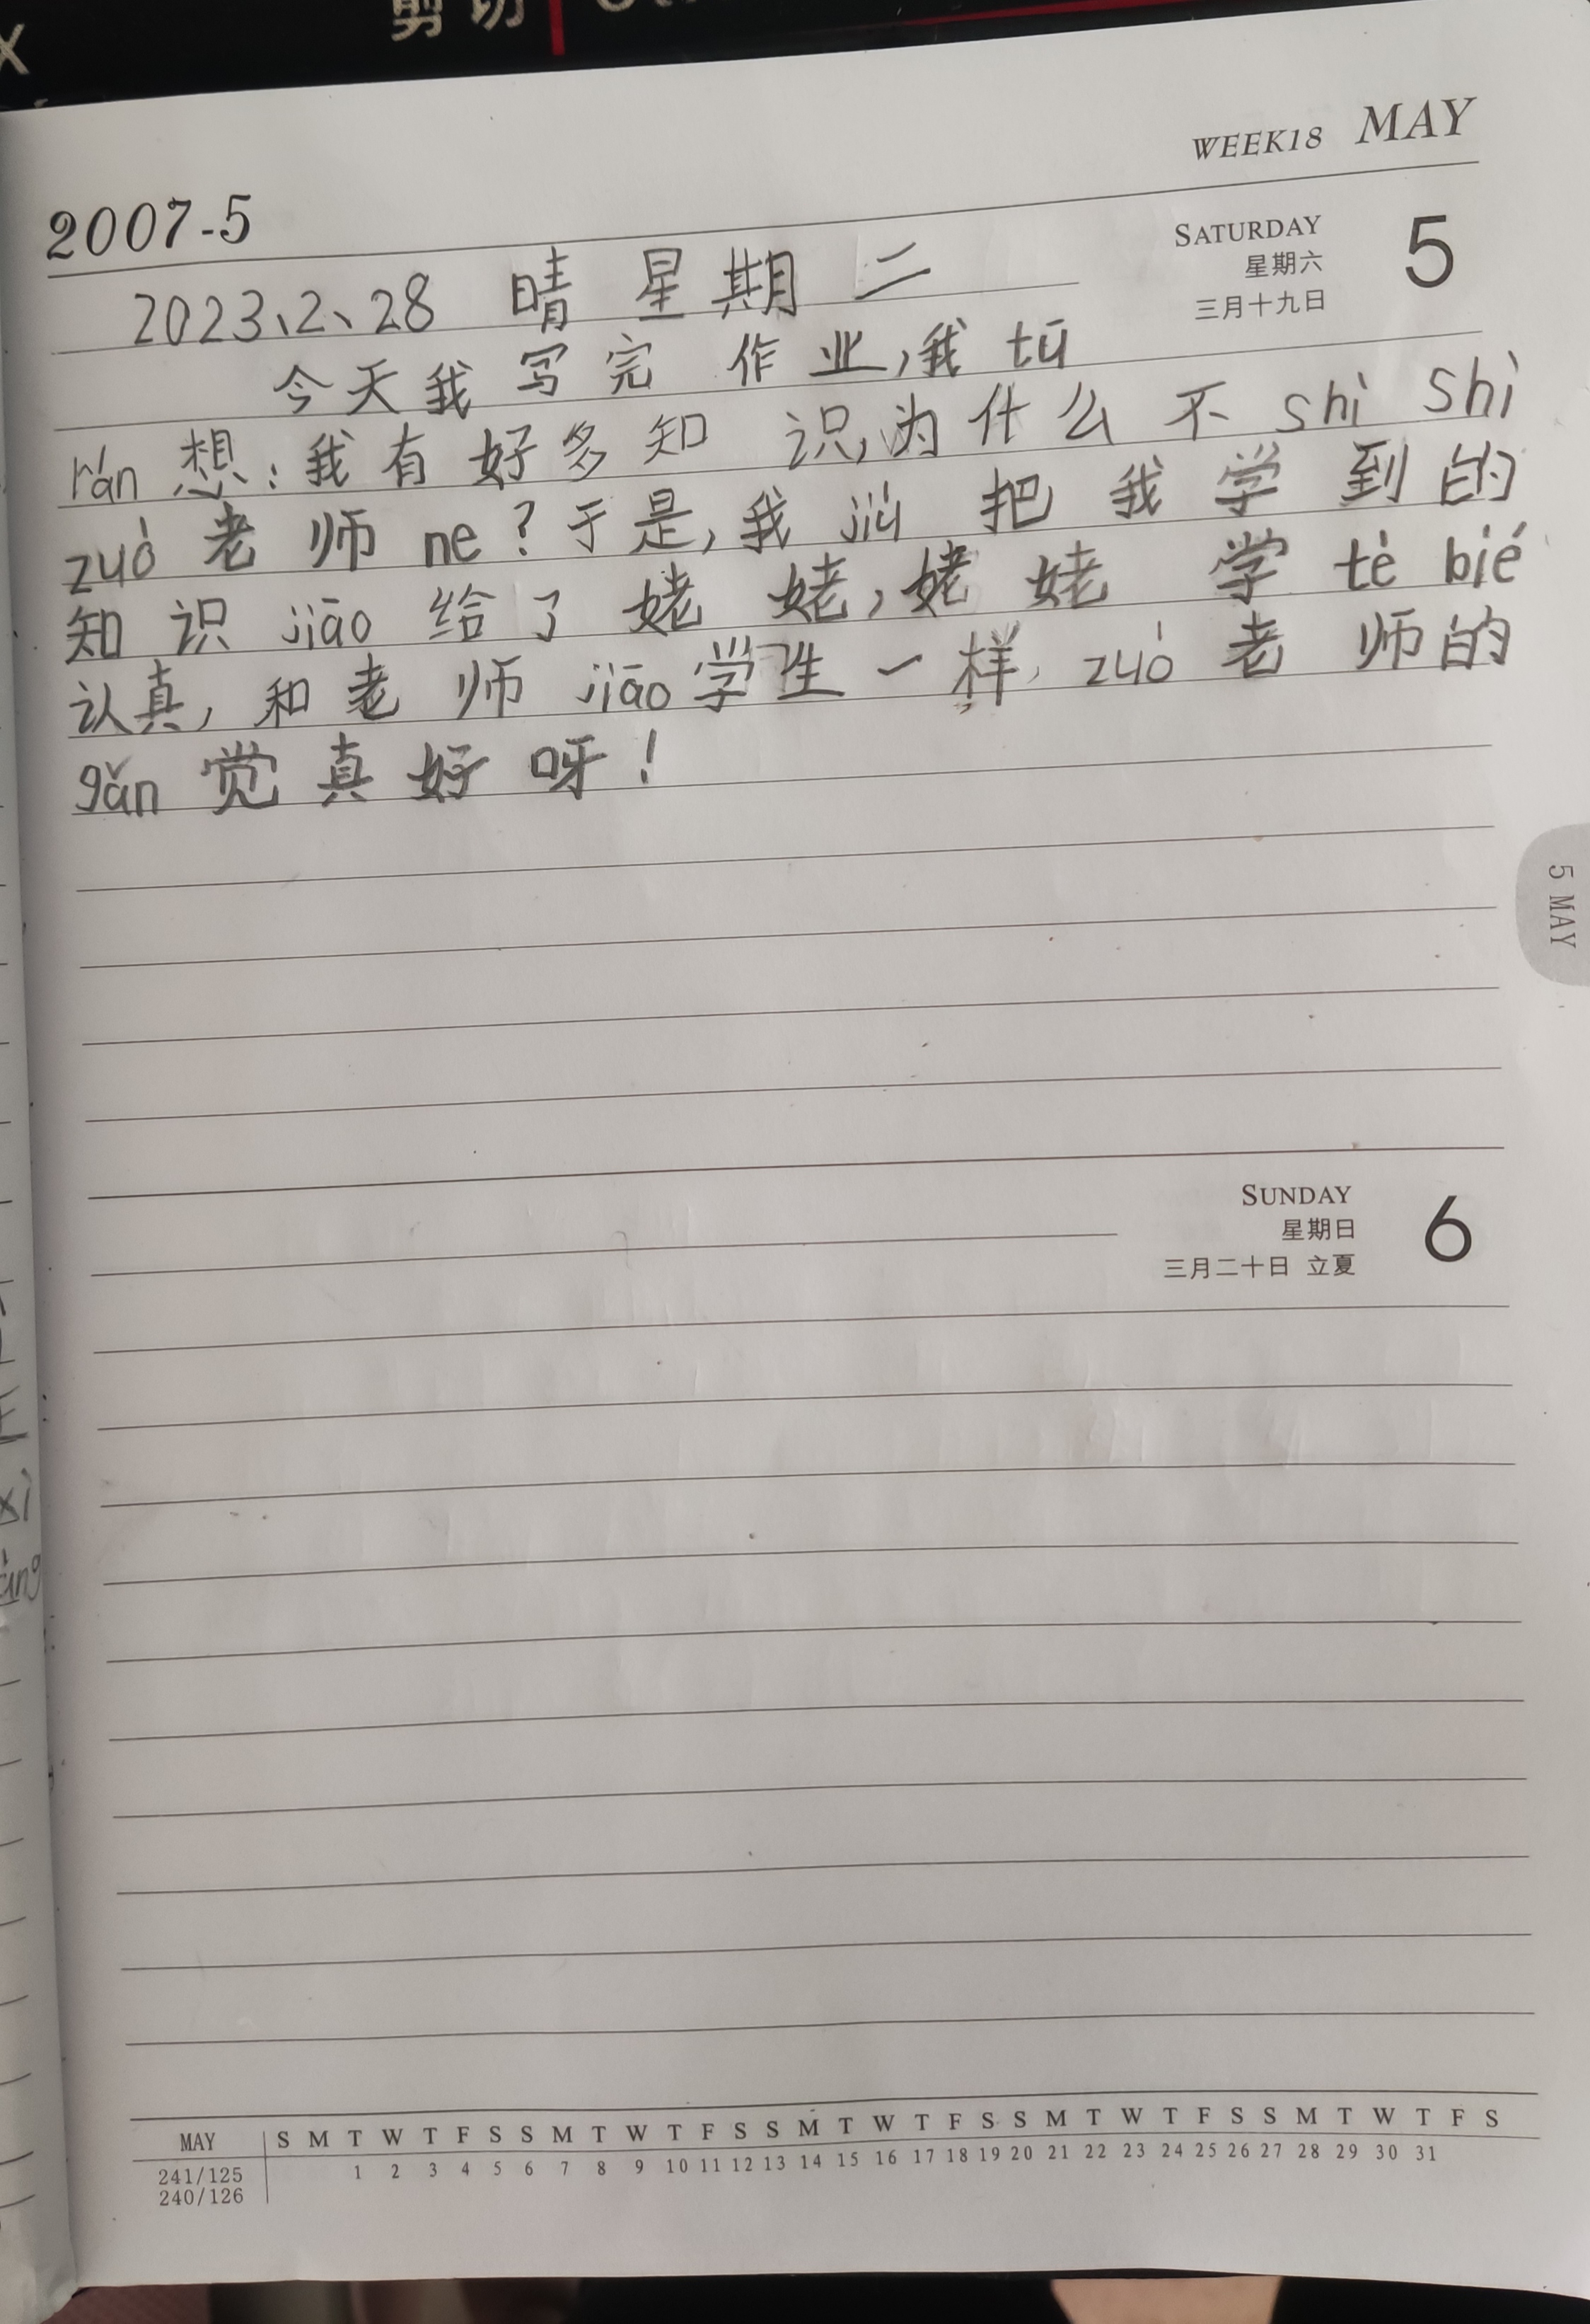 剪切
WEEK18 MAY
2007-5
SATURDAY
星期六
三月十九日
5
2023、2、28 晴 星期二
今天我写完作业,我tū
rán想:我有好多知识,为什么不shì shì
zuò老师ne?于是,我jiù把我学到的
知识jiāo给了姥姥,姥姥学tè bié
认真,和老师jiāo学生一样,zuò老师的
gǎn觉真好呀!
5 MAY
SUNDAY
星期日
三月二十日 立夏
6
MAY S M T W T F S S M T W T F S S M T W T F S S M T W T F S S M T W T F S
241/125 1 2 3 4 5 6 7 8 9 10 11 12 13 14 15 16 17 18 19 20 21 22 23 24 25 26 27 28 29 30 31
240/126